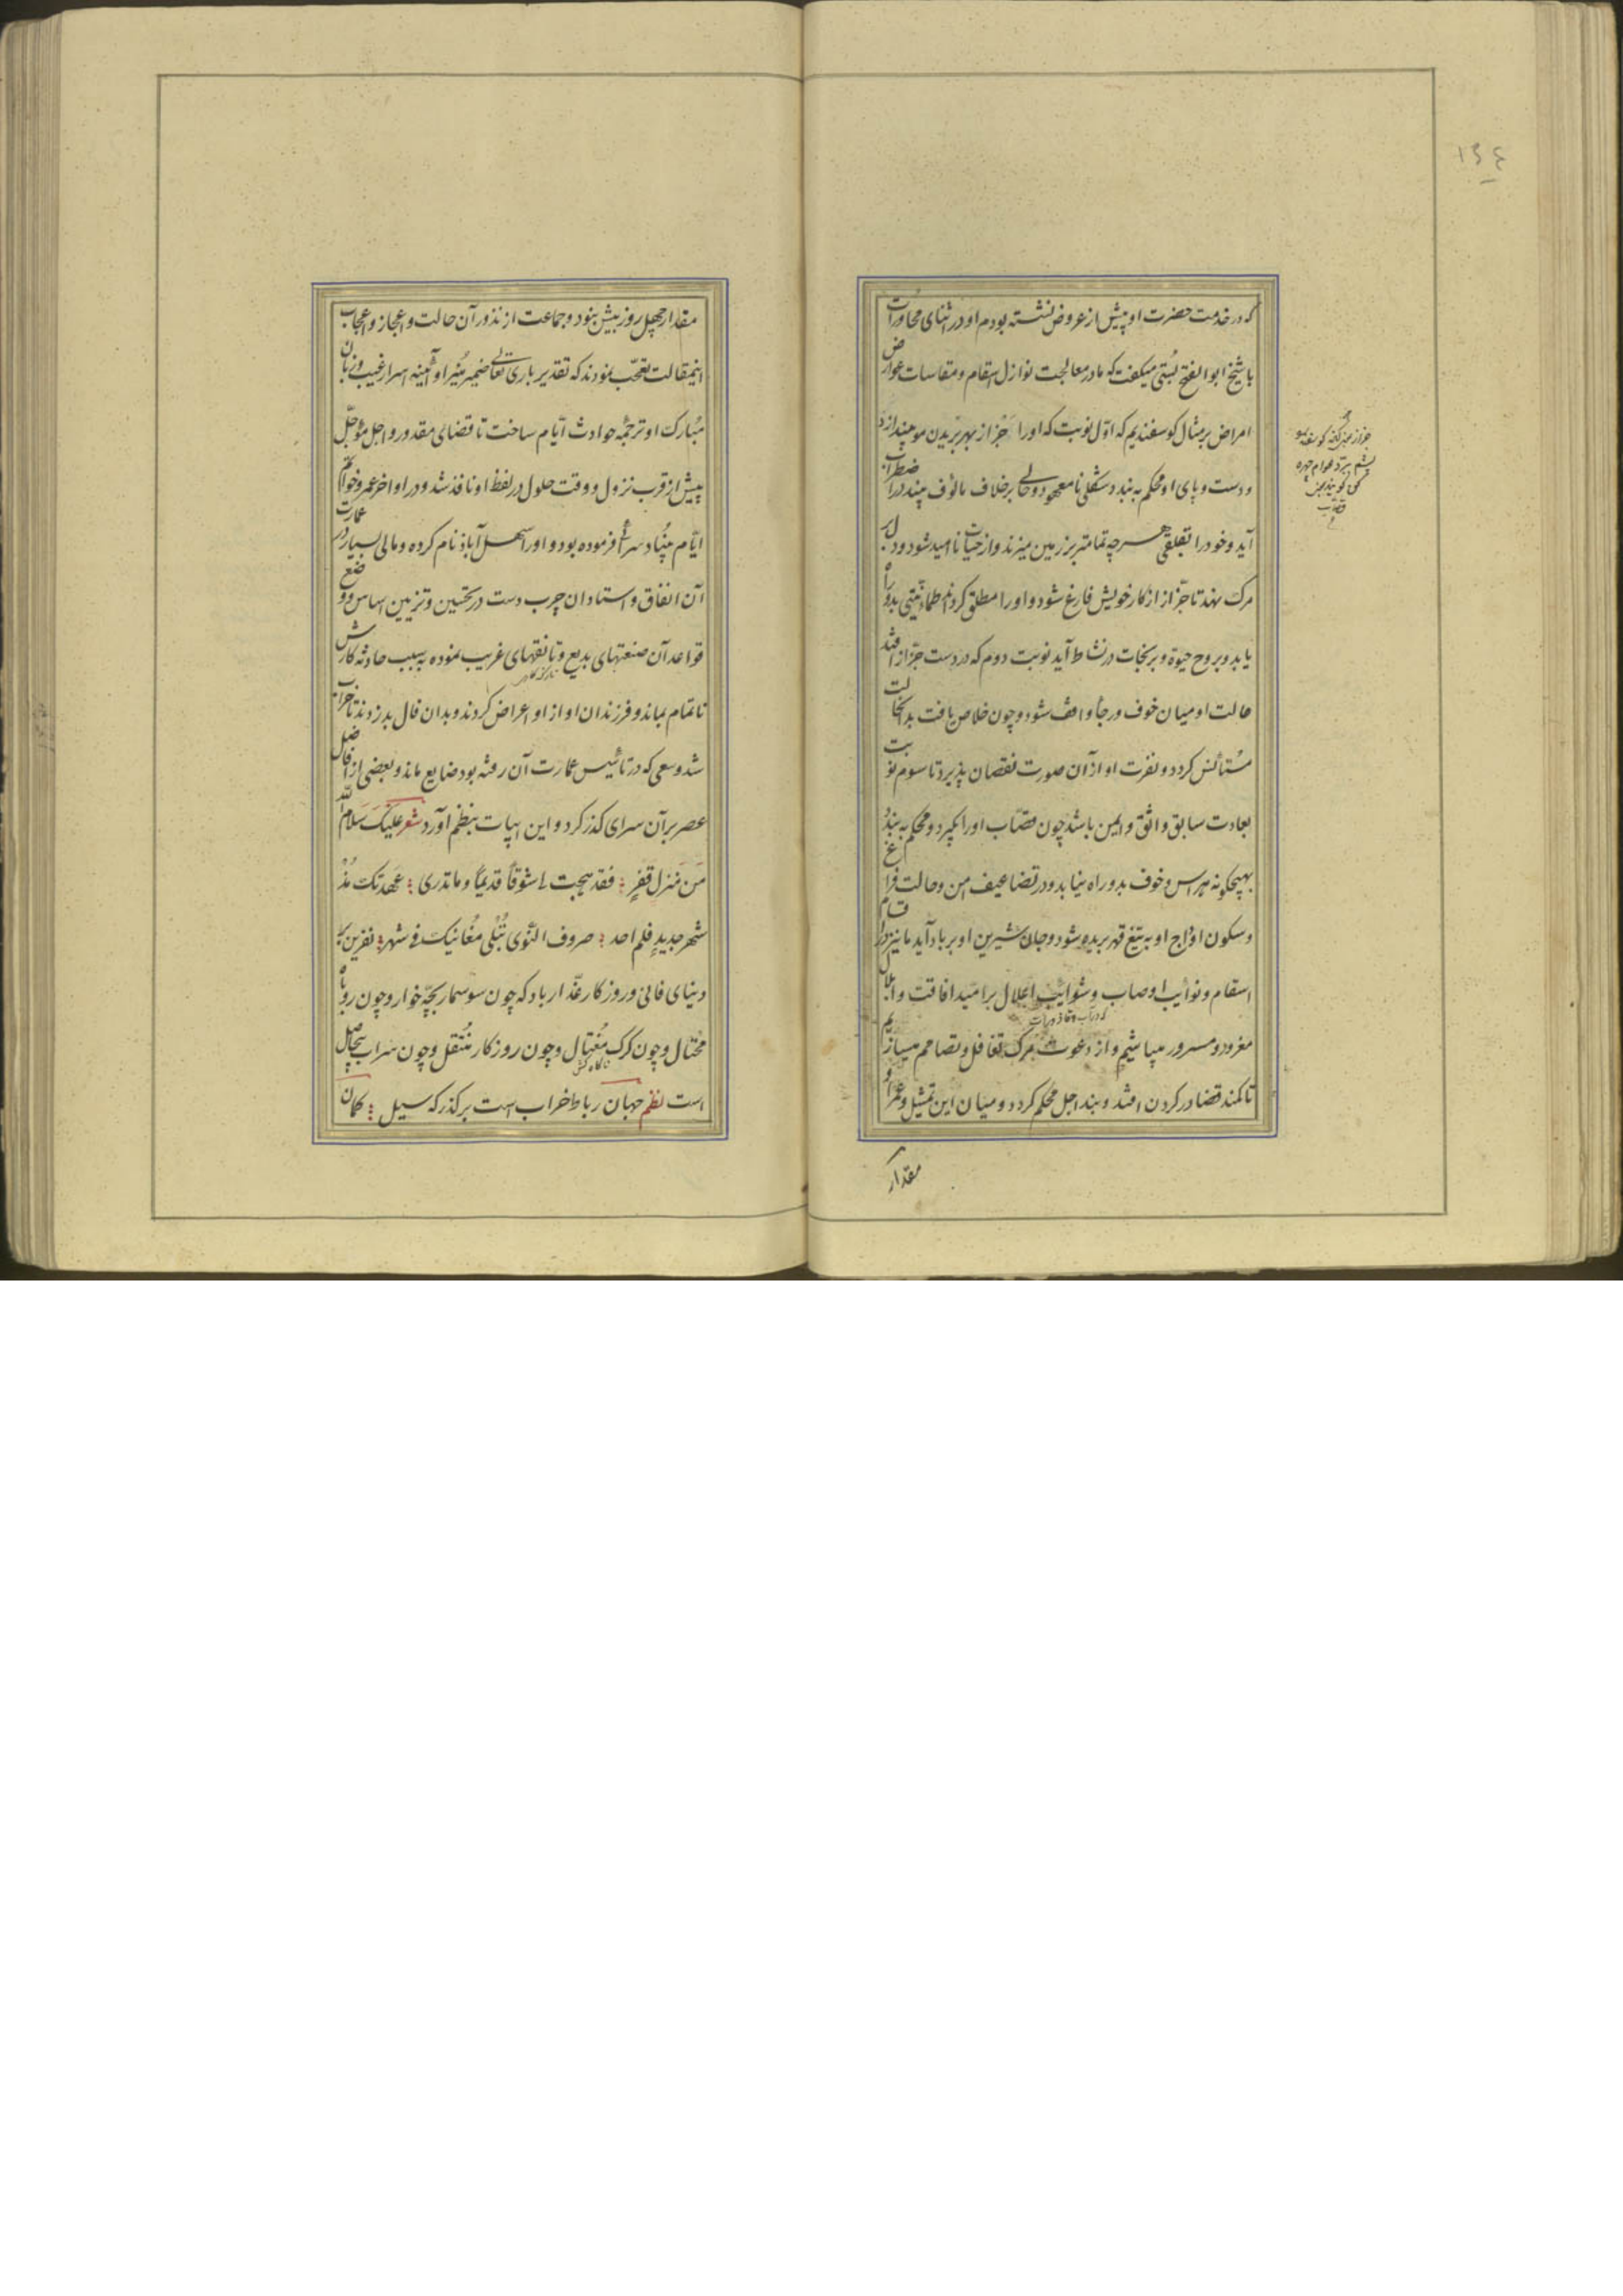 ۱۳۴
که در خدمت حضرت او پیش از عروض نشسته بودم او در اثنای محاورات
با شیخ ابوالفتح بُستی میکفت که ما در معالجت نوازل اسقام و مقاسات عوارض
امراض بر مثال کوسفندیم که اوّل نوبت که او را جزاز بهر بریدن مو میندازد
و دست و پای او محکم به بندد شکلی نامعهود و حالی برخلاف مالوف بیند در اضطراب
آید و خود را بقلقی هرچه تمامتر بر زمین میزند و از حیات ناامید شود و دل بر
مرک نهد تا جزّاز از کار خویش فارغ شود و او را مطلق کرداند طمانینتی بدو راه
یابد و بروح حیوة و بر نجات در نشاط آید نوبت دوم که در دست جزّاز افتد
حالت او میان خوف و رجأ واقف شود و چون خلاص یافت بدانحالت
مُستأنس کردد و نفرت او از آن صورت نقصان پذیرد تا سوم نوبت
بعادت سابق واثق و ایمن باشد چون قصّاب او را بکیرد و محکم به بندد
بهیچکونه هراس و خوف بدو راه نیابد و در تضاعیف امن و حالت فراغ
و سکون اوداج او به تیغ قهر بریده شود و جان شیرین او بر باد آید ما نیز در اقسام
اسقام و نوایب اوصاب و شوایب اعلال بر امید افاقت و ابلال
مغرور و مسرور میباشیم و از دعوت مرک تغافل و تصامم میسازیم
تا کمند قضا در کردن افتد و بند اجل محکم کردد و میان این تمثیل و عمر او
مقدار
مقدار چهل روز بیش نبود و جماعت از نذور آن حالت و اعجاز و اعجاب
اینمقالت تعجّب نمودند که تقدیر باری تعالی ضمیر مُنیر او آیینه اسرار غیب و زبان
مُبارک او ترجمهٔ حوادث ایّام ساخت تا قضای مقدور و اجل مؤجّل
پیش از قرب نزول و وقت حلول در لفظ او نافذ شد و در اواخر عمر و خواتم
ایّام بنیاد سرائی فرموده بود و او را سهل آباد نام کرده و مالی بسیار در عمارت
آن انفاق و استادان چرب دست در تحسین و تزیین اساس و وضع
قواعد آن صنعتهای بدیع و تانقهای غریب نموده به سبب حادثه کارش
ناتمام بماند و فرزندان او از او اعراض کردند و بدان فال بد زدند تا خراب
شد و سعی که در تأسیس عمارت آن رفته بود ضایع ماند و بعضی از افاضل
عصر بر آن سرای کذر کرد و این ابیات بنظم آورد شعر علیک سلام اللّه
من منزل قفرٍ فقد هیجت لی شوقاً قدیماً و ما تدری عهدتک مُذ
شهر جدید فلم احد صروف النوی تُبلی مغانیک فی شهر نفرین بر
دنیای فانی و روزکار غدّار باد که چون سوسمار بچّه خوار و چون روباه
محتال و چون کرک مُغتال و چون روزکار مُتنقل و چون سراب بیحاصل
است نظم جهان رباط خراب است بر کذرکه سیل کمان